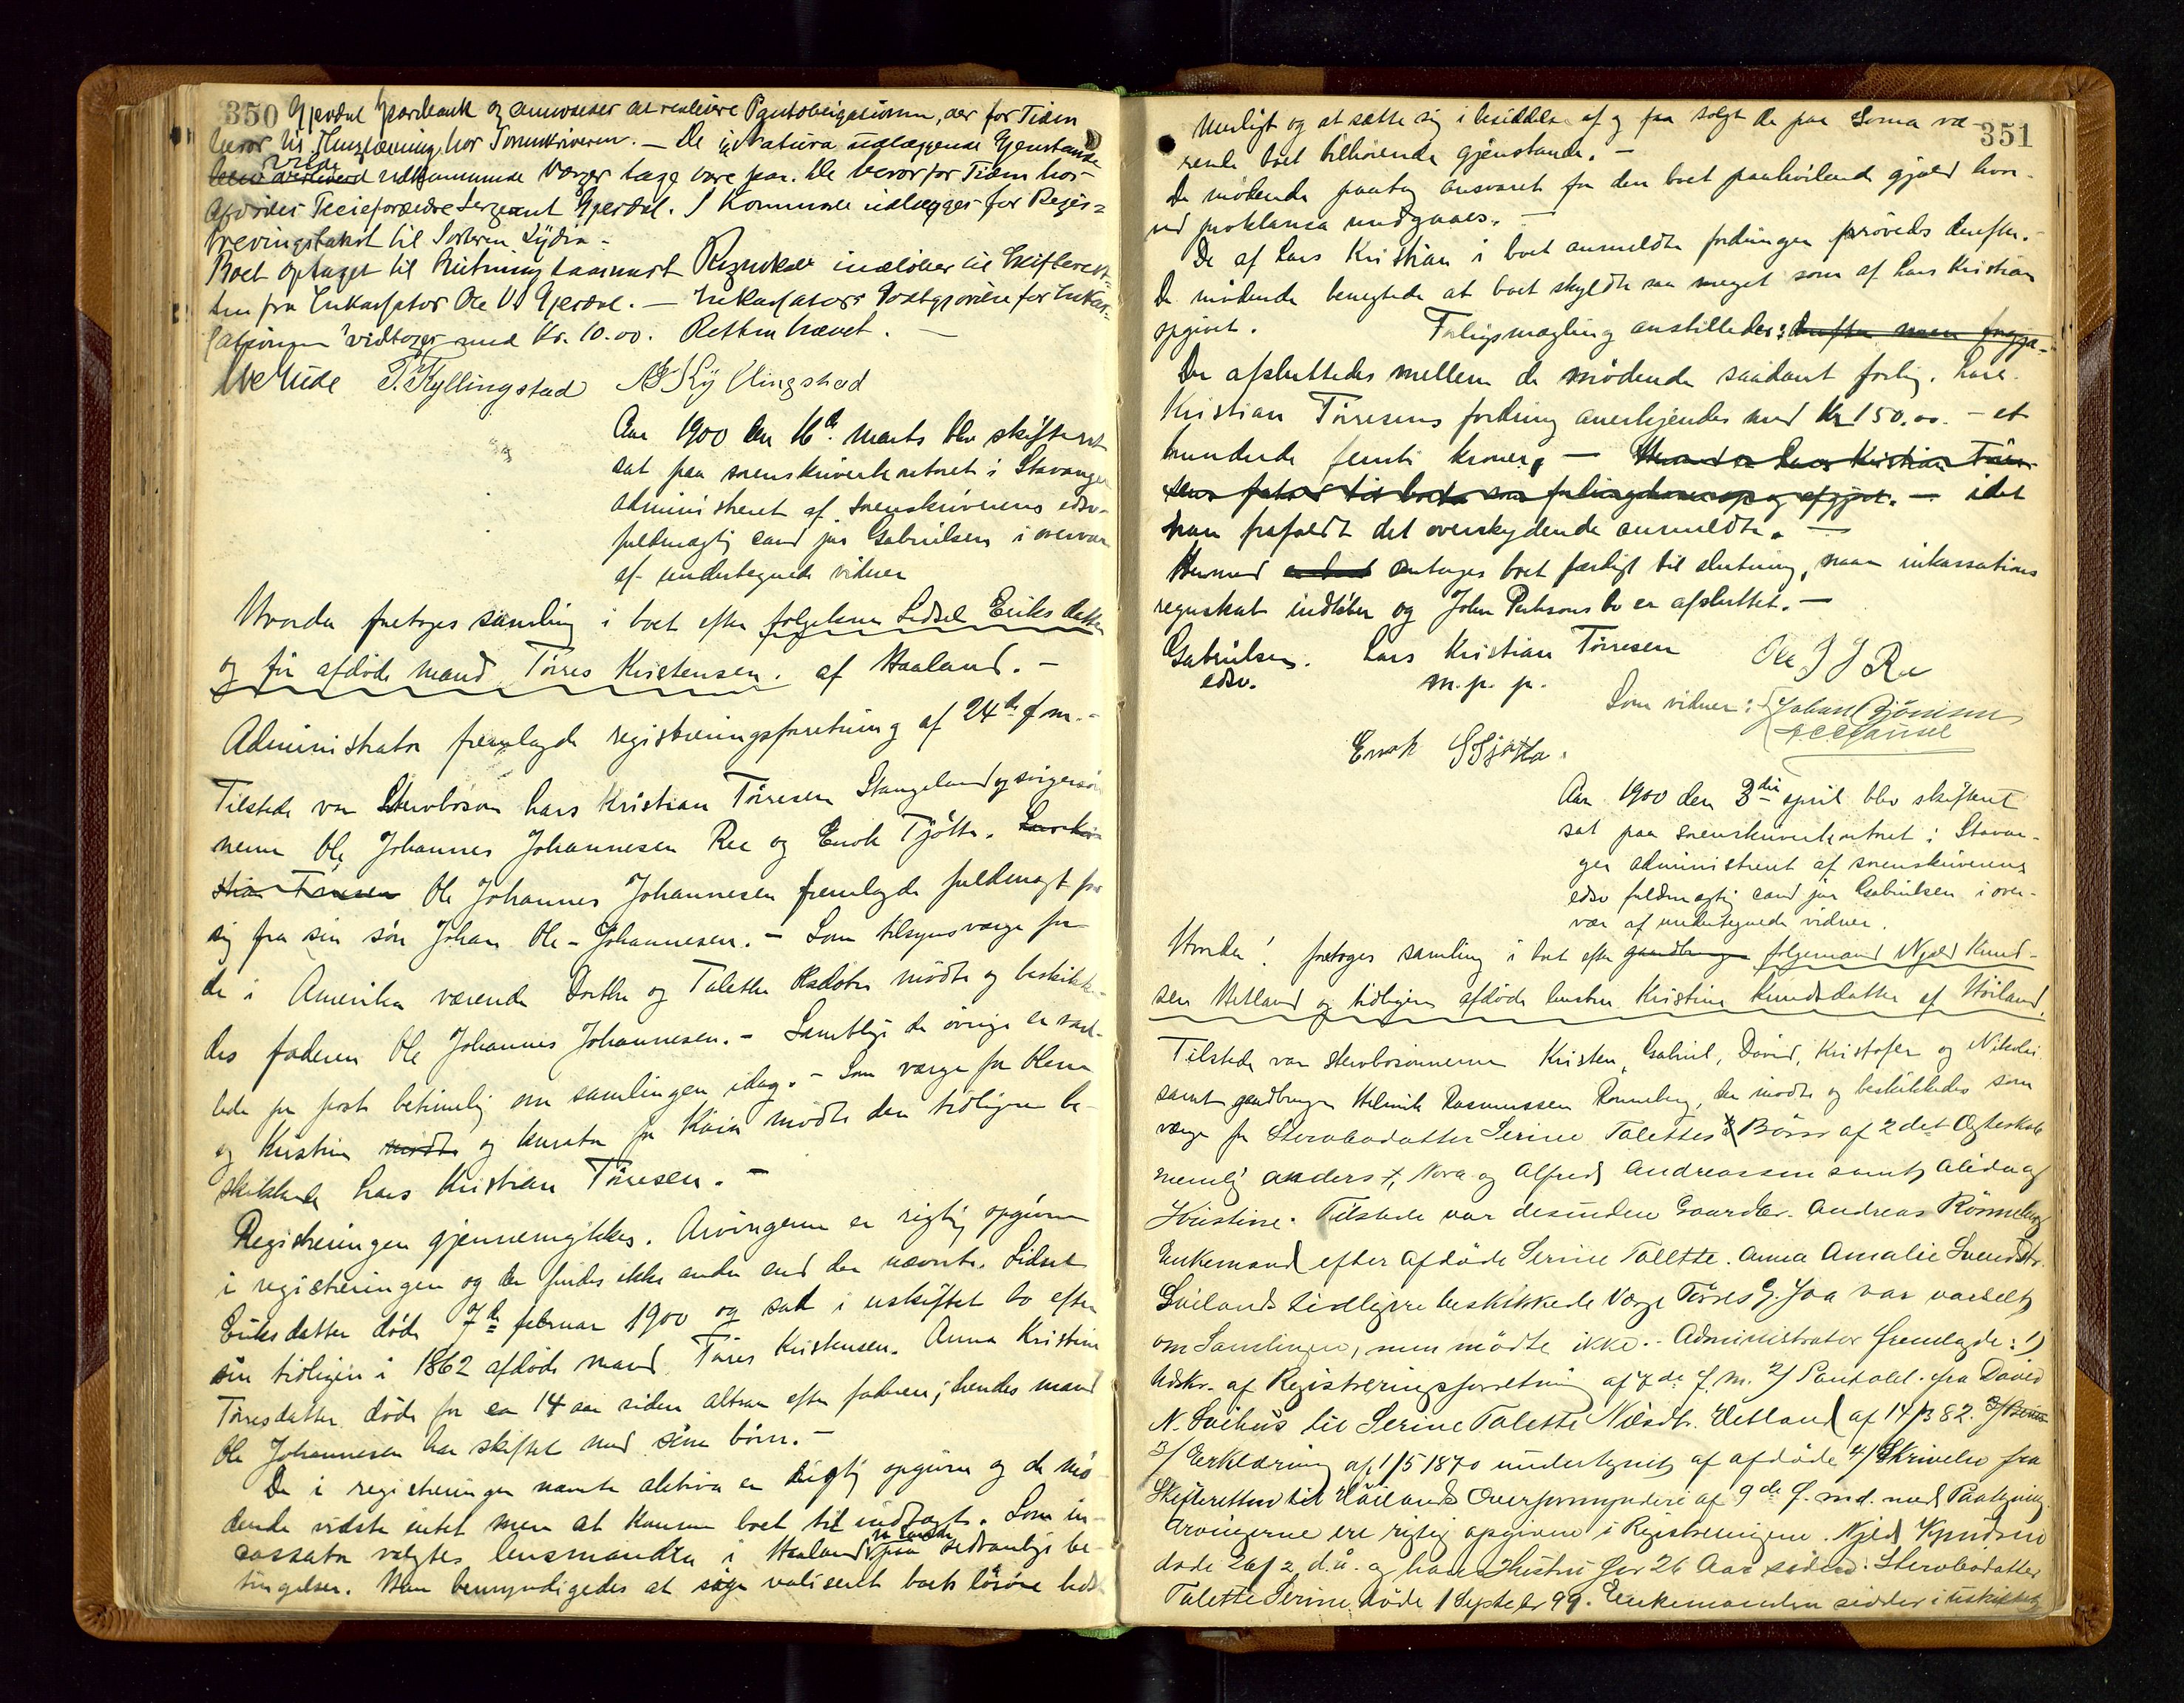 350 Gjesdal Sparebank og anmoder at realisere Pantobligationen, der for Tiden
beror til Thinglæsning hos Sorenskriveren. – De in Natura udlæggende Gjenstande
vilde
udkommende Værger tage vare paa. De beror for Tiden hos
Afdødes Sergeant Gjesdal. I Kommune udlægges for Regis-
treringstakst til Søsteren Lydia –
Boet optaget til Slutning saasnart Regnskab indløber til Skifteret-
ten fra Inkassator Ole V. Gjesdal. – Inkassators Godtgjørelse for Inkas-
sationen vedtoges med Kr. 10.00. Retten hævet. –
T. Kyllingstad Kyllingstad
Aar 1900 den 16de marts blev skifteret
sat paa sorenskriverkontoret i Stavanger
administreret af sorenskriverens edsv.
fuldmægtig cand jur Gabrielsen i overvær
af undertegnede vidner
Hvorda foretoges samling i boet efter følgekone Sidsel Eriksdatter
og før afdøde mand Tørres Kristensen. af Haaland. –
Administrator fremlagde registreringsforretning af 24de f m. –
Tilstede var Stervbosøn Lars Kristian Tørresen Stangeland og svigersøn-
nerne Ole Johannes Johannesen Ree og Enok Tjøtta. Lars Kri-
stian Tørresen Ole Johannes Johannesen fremlagde fuldmagt for
sig fra sin søn Johan Ole-Johannesen. – Som tilsynsværge for
de i Amerika værende Dorthe og Talette Olsdøtre mødte og beskikke-
des faderen Ole Johannes Johannesen. – Samtlige de øvrige er vars-
lede pr post betimelig om samlingen idag. – Som værge for Olena
og Kristine mødte og kurator for Kaia mødte den tidligere be-
skikkede Lars Kristian Tørresen. –
Registreringen gjennemgikkes. Arvingerne er rigtig opgivne
i registreringen og der findes ikke andre end der nævnte. Sidsel
Eriksdatter døde 7de februar 1900 og sad i uskiftet bo efter
sin tidligere i 1862 afdøde mand Tørres Kristensen. Anna Kristine
Tørresdatter døde for ca 14 aar siden altsaa efter faderen; hendes mand
Ole Johannesen har skiftet med sine børn. –
De i registreringen nævnte aktiva er rigtig opgivne og de mø-
dende vidste intet mere at kunne boet tilindtagt. Som in-
cassator valgtes lensmanden i Haaland paa sedvanlige be-
tingelser. Han bemyndigedes at søge realiseret boets løsøre bedst
muligt og at sætte sig i besiddelse af og faa solgt de paa Soma væ- 351
rende boet tilhørende gjenstande. –
De mødende paatog ansvaret for den boet paahvilende gjæld hvor-
ved proklama undgaaes. –
De af Lars Kristian i boet anmeldte fordringer prøvedes derefter. –
De mødende benegtede at boet skyldte saa meget som af Lars Kristian
opgivet. Forligsmægling anstilledes:
Der afsluttedes mellem de mødende saadant forlig. Lars
Kristian Tørresens fordring anerkjendes med Kr 150.00. – et
hundrede femti kroner, – Hvorved er Lars Kristian Tørre-
sens – idet
han frafaldt det overskydende anmeldte. –
Hermed er boet antages boet færdigt til slutning, naar inkassations
regnskab indløber og John Pedersens bo er afsluttet. –
Gabrielsen. Lars Kristian Tørresen Ole J J Re
edsv. m. p. p.
Som vidner: Johan Bjørnsen
Enok Tjøtta.
Aar 1900 den 3die april blev skifteret
sat paa sorenskriverkontoret i Stavan-
ger administreret af sorenskriverens
edsv fuldmægtig cand jur Gabrielsen i over-
vær af undertegnede vidner.
Hvorda! foretoges samling i boet efter gaardbruger følgemand Njæld Knud-
sen Hetland og tidligere afdøde hustru Kristine Knudsdatter af Høiland.
Tilstede var stervbosønnerne Kristen, Gabriel, David, Kristofer og Nikolai
samt gaardbruger Helmik Rasmussen Rønneberg, der mødte og beskikkedes som
værge for Stervbodatter Serine Talettes Børn af 2det Ægteskab
nemlig Anders, Nora og Alfred Andreassen samt Alida og
Kristine. Tilstede var desuden Gaardbr. Andreas Rønneberg
Enkemand efter afdøde Serine Talette. Anna Amalie Svendsdtr.
Sviland tidligere beskikkede Værge Tørres G. Joa var varslet
om Samlingen, men mødte ikke. – Administrator fremlagde: 1)
Udskr. af Registreringsforretning af 7de f. m. 2/ Pantobl. fra David
N. Svihus til Serine Talette Njædsdtr. Hetland af 14/3 82.
3/ Erklæring af 1/5 1870 undertegnet af afdøde 4/ Skrivelse fra
Skifteretten til Høilands Overformynderi af 9de f. md. med Paategning
Arvingerne ere rigtig opgivne i Registreringene. Njæd Knudsen
døde 20/2 d.å. og hans Hustru for 26 Aar siden. Stervbodatter
Talette Serine døde 1 Septebr 99. Enkemanden sidder i uskiftet